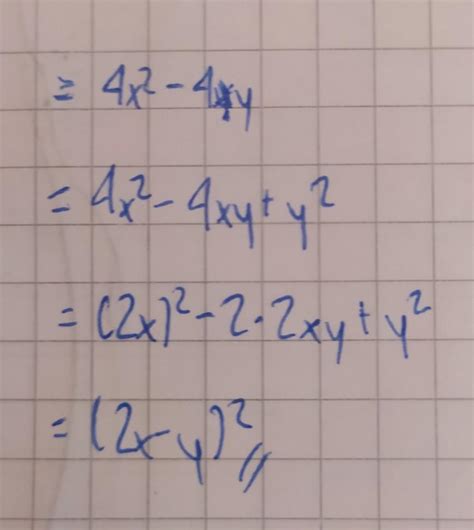 = 4x² - 4xy
= 4x² - 4xy + y²
= (2x)² - 2·2xy + y²
= (2x - y)²//